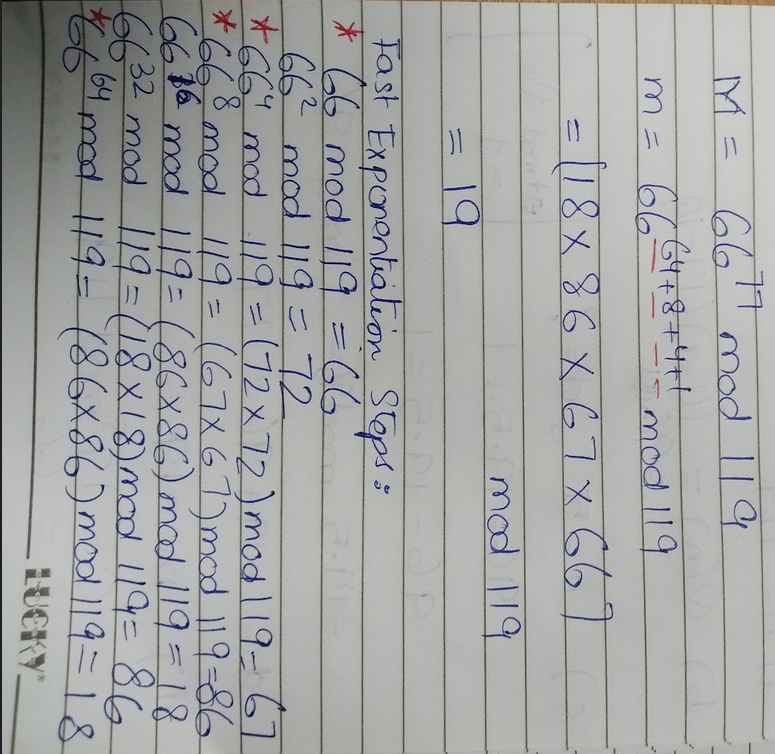 M = 66^77 mod 119
m = 66^64+8+4+1 mod 119
= (18 × 86 × 67 × 66)
mod 119
= 19
Fast Exponentiation Steps:
* 66 mod 119 = 66
66^2 mod 119 = 72
* 66^4 mod 119 = (72 × 72) mod 119 = 67
* 66^8 mod 119 = (67 × 67) mod 119 = 86
66^16 mod 119 = (86 × 86) mod 119 = 18
66^32 mod 119 = (18 × 18) mod 119 = 86
* 66^64 mod 119 = (86 × 86) mod 119 = 18
LUCKY